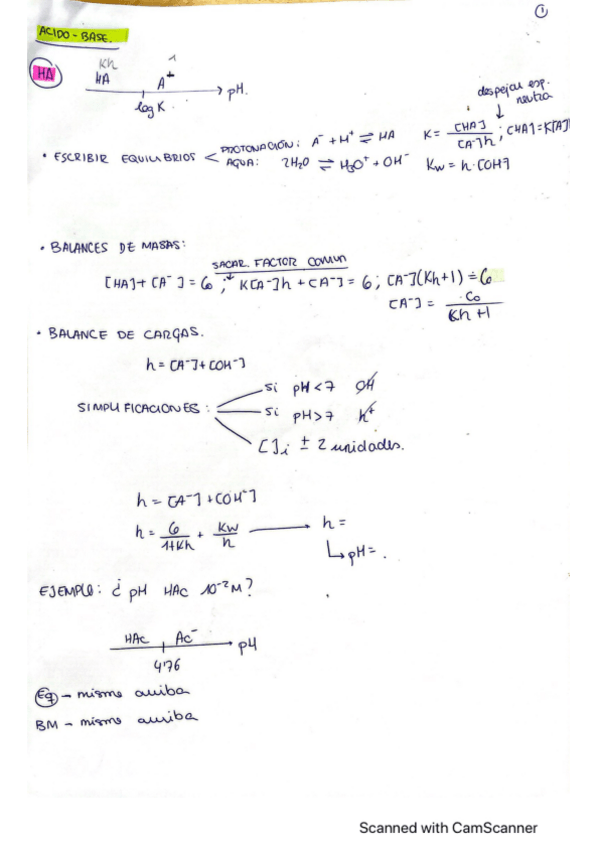 ①
ACIDO - BASE.
HA
Kh 1
HA A⁻ → pH.
log K
despejar esp. neutra
• ESCRIBIR EQUILIBRIOS < PROTONACIÓN: A⁻ + H⁺ ⇌ HA K = [HA] / [A⁻]h ; [HA] = K[A]
AGUA: 2H₂O ⇌ H₃O⁺ + OH⁻ Kw = h·[OH⁻]
• BALANCES DE MASAS:
SACAR FACTOR COMUN
[HA] + [A⁻] = Co ; K[A⁻]h + [A⁻] = Co ; [A⁻](Kh+1) = Co
[A⁻] = Co / Kh + 1
• BALANCE DE CARGAS.
h = [A⁻] + [OH⁻]
SIMPLIFICACIONES: si pH < 7 OH
si pH > 7 h⁺
[ ]i ± 2 unidades.
h = [A⁻] + [OH⁻]
h = Co / 1+Kh + Kw / h → h =
↳ pH = .
EJEMPLO: ¿ pH HAc 10⁻² M ?
HAc Ac⁻ → pH
4'76
Eq - mismo arriba
BM - mismo arriba
Scanned with CamScanner